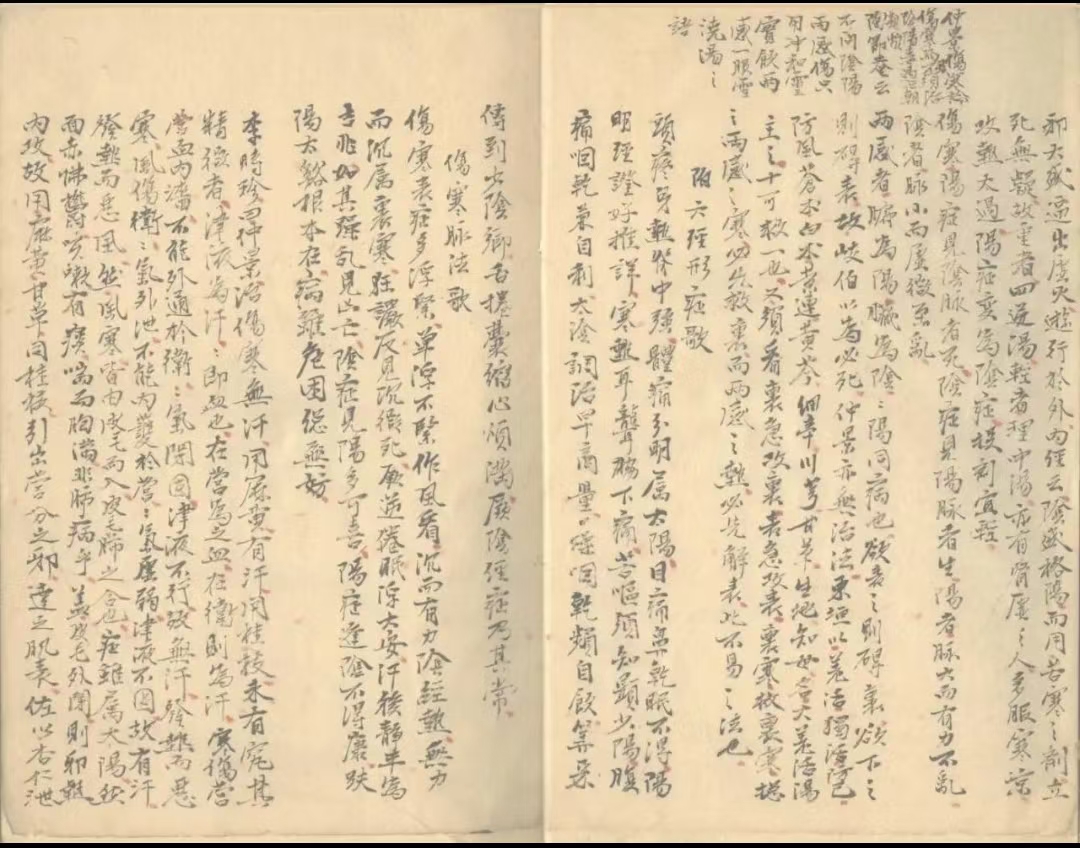 仲景傷寒論
陶節菴云
不問陰陽
兩感傷只
用冲和靈
寶飲兩
感一服雪
澆湯之
語
邪大盛逼出虛火遊行於外內經云陰盛格陽而用苦寒之劑立
死無疑故重者四逆湯輕者理中湯亦有腎虛之人多服寒涼
攻熱太過陽症變為陰症後刻宜辨
傷寒陽症見陰脉者死陰症見陽脉者生陽者脉大而有力不亂
陰者脉小而虛微原亂
兩感者腑為陽臟為陰陰陽同病也欲表之則碍裏欲下之
則碍表故岐伯以為必死仲景亦無治法東垣以羌活獨活芭
防風蒼本白朮黃連黃芩細辛川芎甘草生地知母名大羌活湯
主之十可救一也又須看裏急攻裏表急攻表裏寒救裏寒總
之兩感之寒必先救裏而兩感之熱必先解表此不易之法也
附 六經形症歌
頭疼身熱脊中強體痛分明屬太陽目痛鼻乾眠不得陽
明經證好推詳寒熱耳聾脇下痛苦嘔須知顯少陽腹
痛咽乾兼自利太陰調治早商量燥咽乾頻自飲算來
傳到少陰鄉舌捲囊縮心煩滿厥陰經症乃其常
傷寒脉法歌
傷寒表症多浮緊單浮不緊作風看沉而有力陰經熱無力
而沉屬裏寒狂讝反見沉微死厥逆捲眠浮大安汗後靜半為
吉兆如其躁乱見凶亡陰症見陽多可喜陽症逢陰不得寧趺
陽太谿根本在病雖危困總無妨
李時珍曰仲景治傷寒無汗用麻黃有汗用桂枝未有究其
精微者津液為汗汗即血也在營為之血在衛則為汗寒傷營
營血內濇不能外通於衛衛氣閉固津液不行故無汗發熱而惡
寒風傷衛衛氣外泄不能內護於營營氣虛弱津液不固故有汗
發熱而惡風然風寒皆由皮毛而入皮毛肺之合也症雖屬太陽然
面赤怫鬱咳嗽有痰喘而胸滿非肺病乎盖皮毛外閉則邪熱
內攻故用麻黃甘草同桂枝引出營分之邪達之肌表佐以杏仁泄